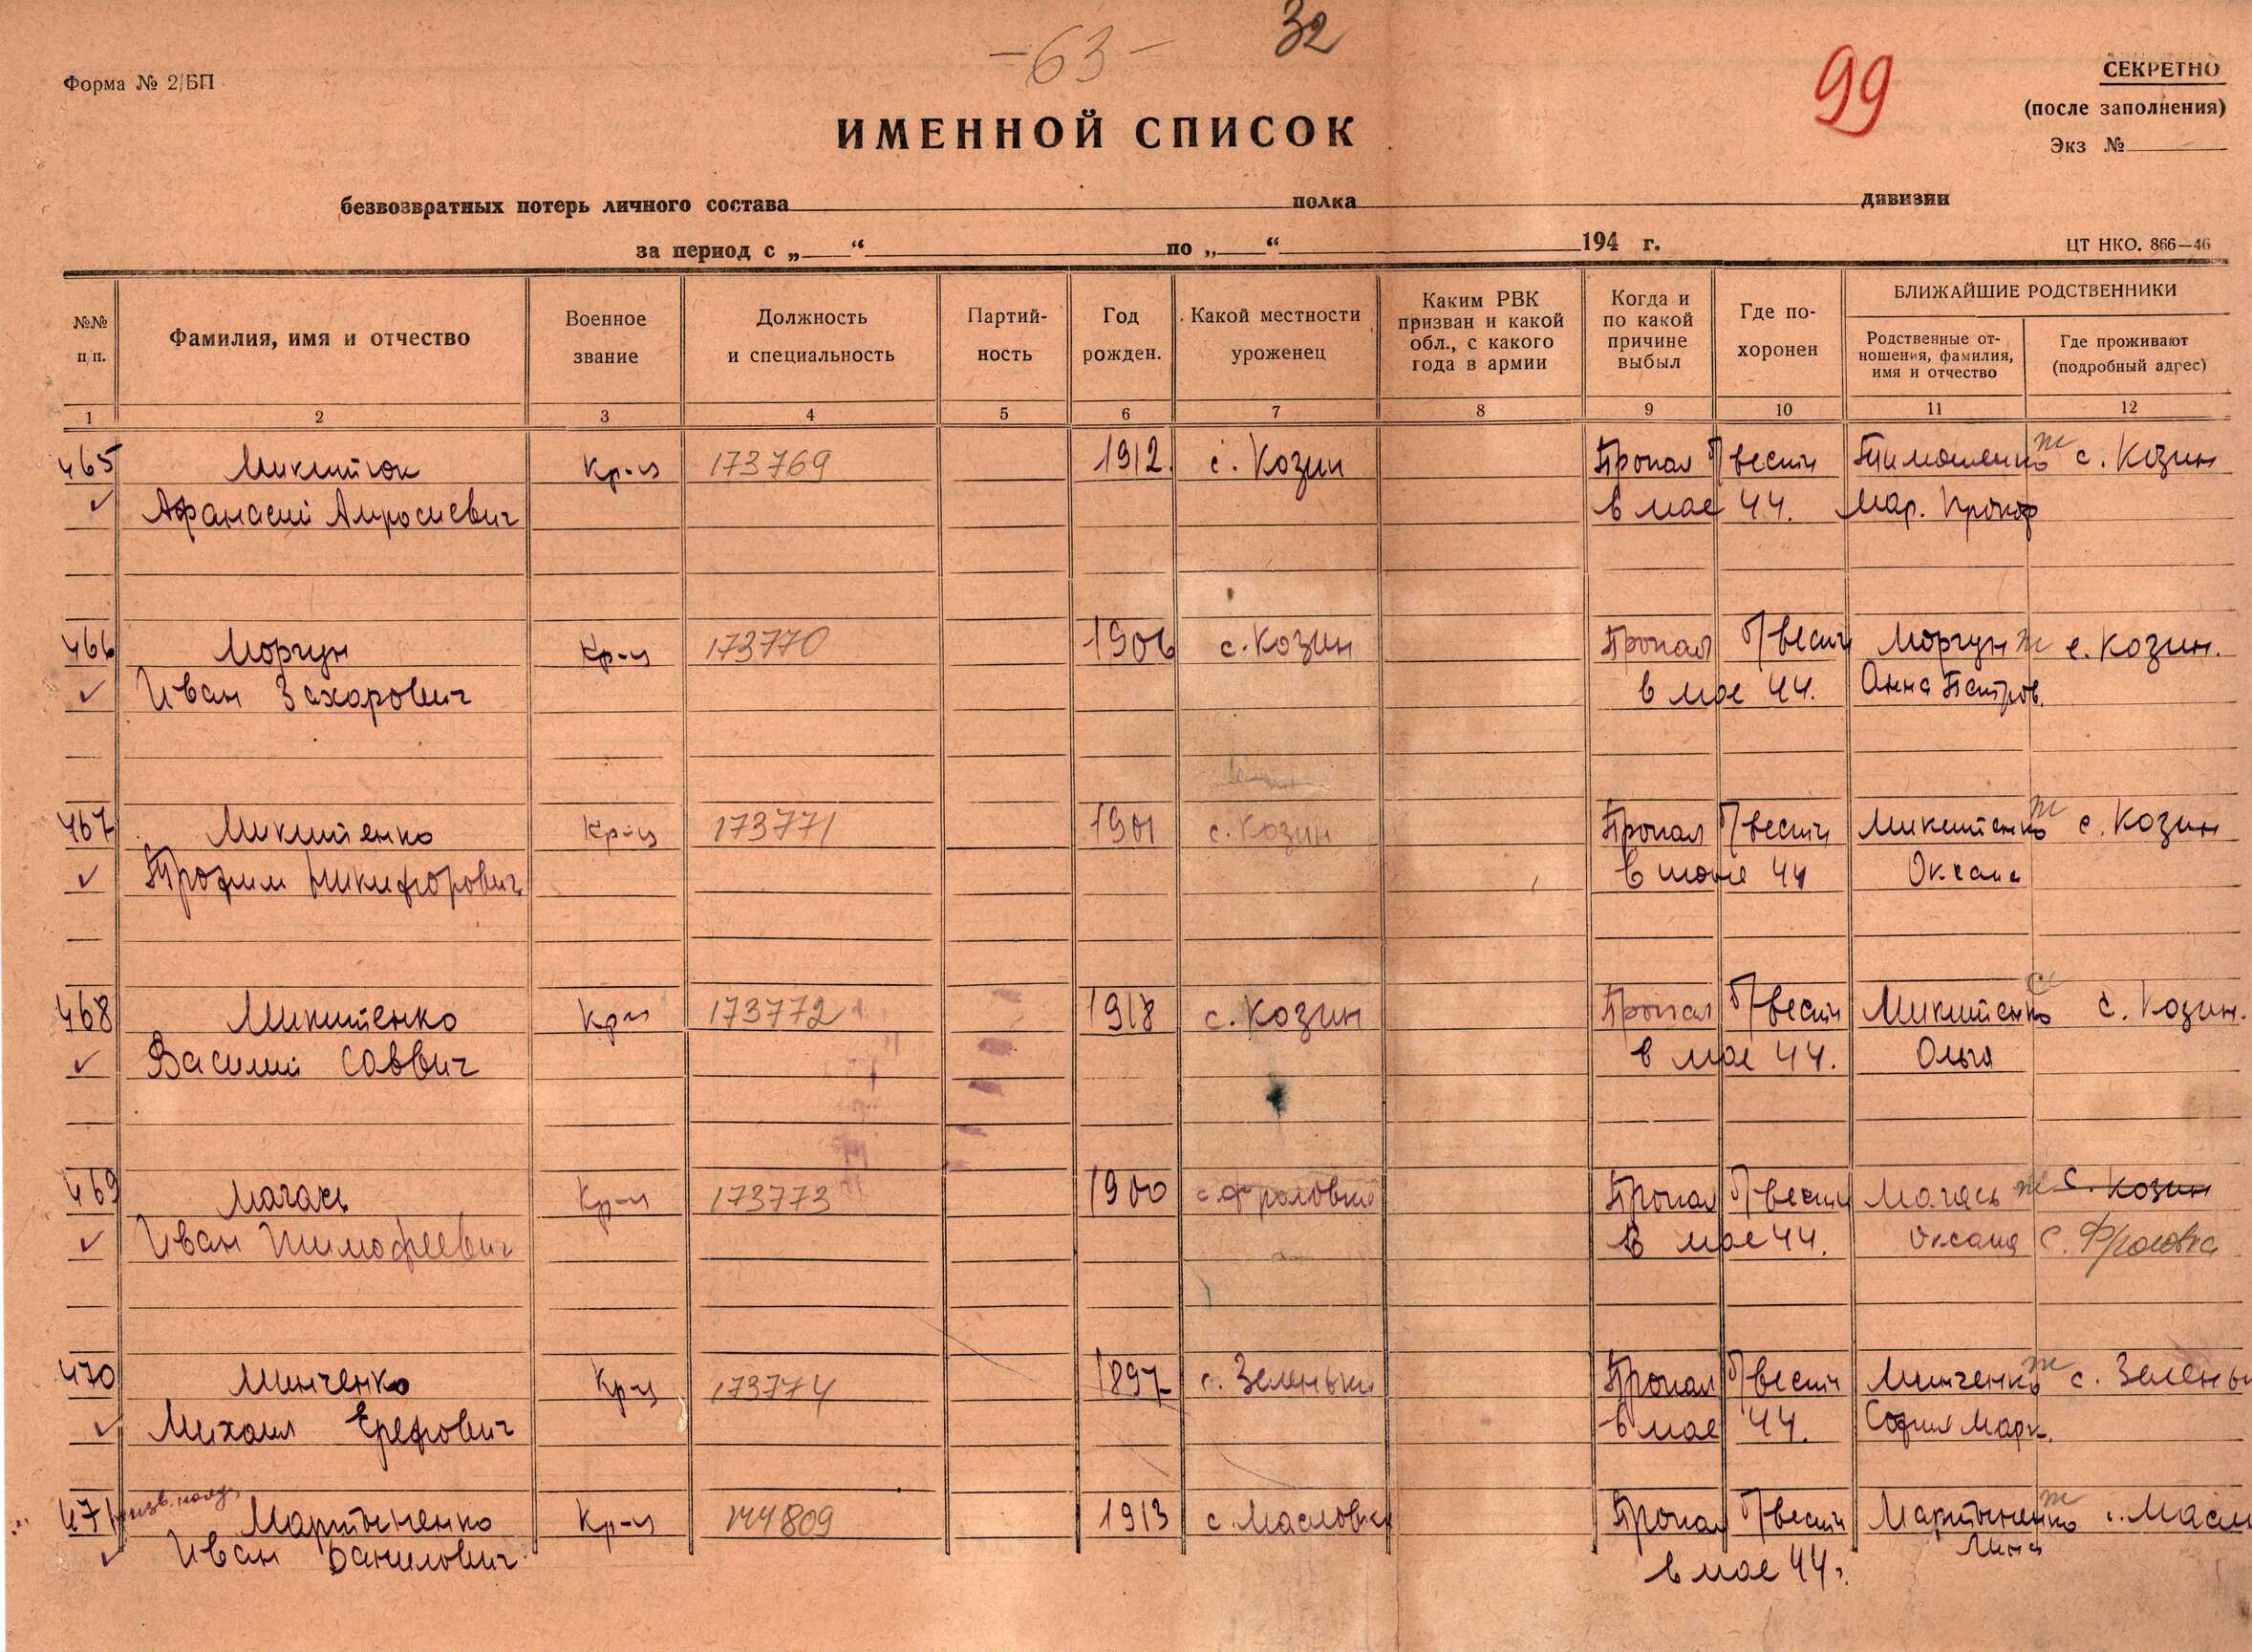 -63-
32
99
Форма № 2/БП
СЕКРЕТНО
(после заполнения)
Экз №
ИМЕННОЙ СПИСОК
безвозвратных потерь личного состава полка дивизии
за период с „ “ по „ “ 194 г.
ЦТ НКО. 866—46
№№ п/п.
Фамилия, имя и отчество
Военное звание
Должность и специальность
Партий-ность
Год рожден.
Какой местности уроженец
Каким РВК призван и какой обл., с какого года в армии
Когда и по какой причине выбыл
Где по-хоронен
БЛИЖАЙШИЕ РОДСТВЕННИКИ
Родственные от-ношения, фамилия, имя и отчество
Где проживают (подробный адрес)
1 2 3 4 5 6 7 8 9 10 11 12
465 Микитюк Кр-ц 173769 1912 с. Козин Пропал б/вести Тимошенко ж с. Козин
Афанасий Амросиевич в мае 44. Мар. Прокоф
466 Моргун Кр-ц 173770 1906 с. Козин Пропал б/вести Моргун ж с. Козин.
Иван Захарович в мае 44. Анна Петров.
467 Микитенко Кр-ц 173771 1901 с. Козин Пропал б/вести Микитенко ж с. Козин
Трофим Никифорович в июне 44 Оксана
468 Микитенко Кр-ц 173772 1918 с. Козин Пропал б/вести Микитенко с. Козин.
Василий Саввич в мае 44. Ольга
469 Магась Кр-ц 173773 1900 с. Фроловка Пропал б/вести Магась ж с. Козин
Иван Тимофеевич в мае 44. Оксана с. Фроловка
470 Минченко Кр-ц 173774 1897 с. Зеленьки Пропал б/вести Минченко ж с. Зеленьк
Михаил Ерефович в мае 44. София Марк.
471 Мартыненко Кр-ц 144809 1913 с. Масловка Пропал б/вести Мартыненко ж с. Масл
Иван Данилович в мае 44г. Лина